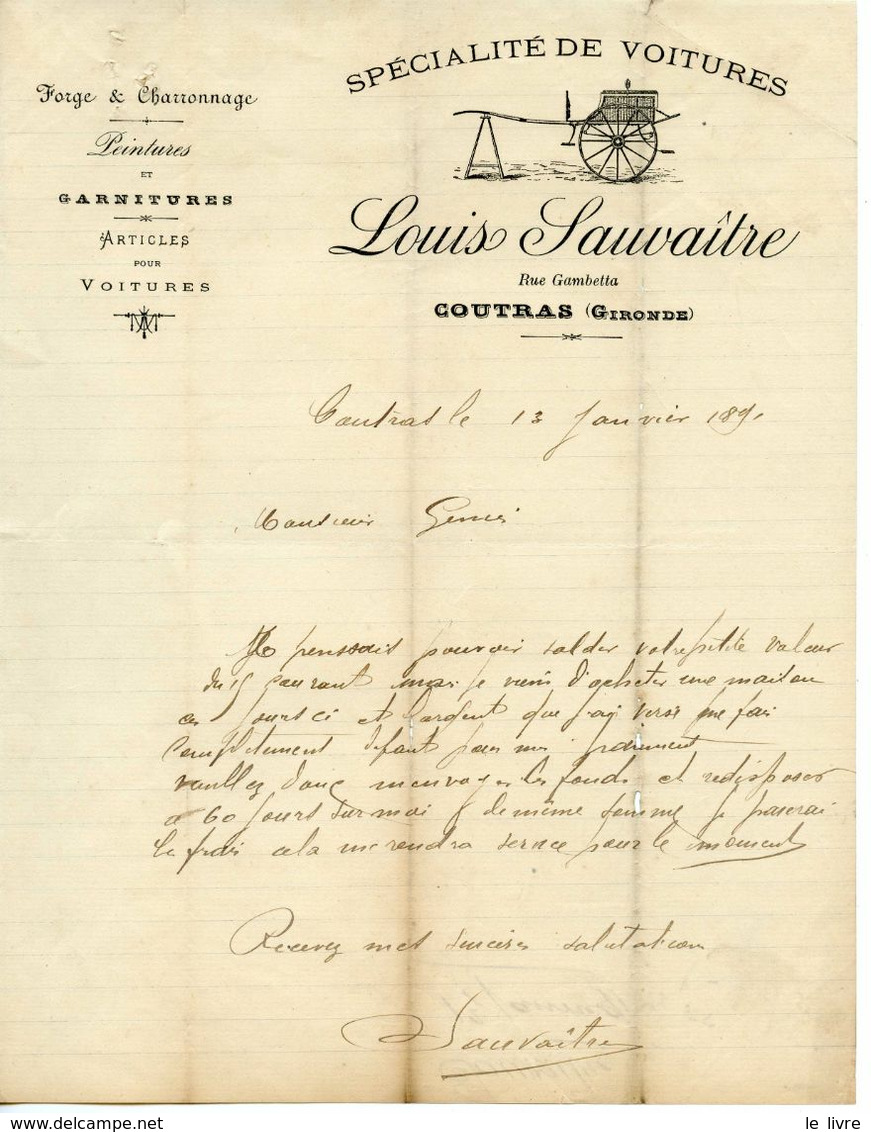 Forge & Charronnage
Peintures
ET
GARNITURES
ARTICLES
POUR
VOITURES
SPÉCIALITÉ DE VOITURES
Louis Sauvaître
Rue Gambetta
COUTRAS (GIRONDE)
Coutras le 13 Janvier 1891
Monsieur
Je penssais pouvoir solder votre petite valeur
du 15 courant mais je viens d'acheter une maison
ces jours ci et l'argent que j'ai versé me fai
complètement défaut pour mes paiement
veuillez donc m'envoyer les fonds et redisposer
a 60 jours sur moi de même somme je paserai
le frais cela me rendra service pour le moment
Recevez mes sincères salutations
Sauvaître
le livre